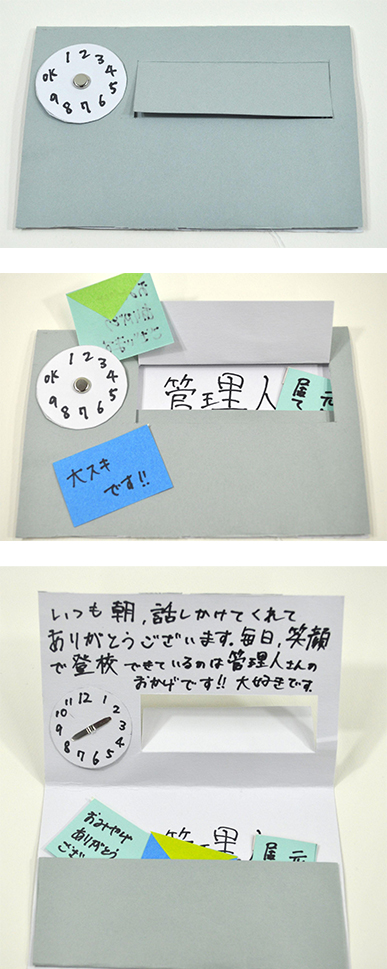 OK 1 2 3 4 5 6 7 8 9
OK 1 2 3 4 5 6 7 8 9
管理人
届
て
元
大スキ
です!!
いつも朝,話しかけてくれて
ありがとうございます。毎日,笑顔
で登校できているのは管理人さんの
おかげです!!大好きです。
12 1 2 3 4 5 6 7 8 9 10 11
おみやげ
ありがとう
ござ
管理
届
元